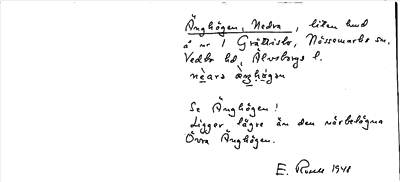 Änghögen, Nedra, liten hud
å nr 1 Grättvisbo, Nössemarks sn,
Vedbo hd, Älvsborgs l.
nèara ànghögan
Se Änghögen!
Ligger lägre än den närbelägna
Övra Änghögen.
E. Rosell 1940